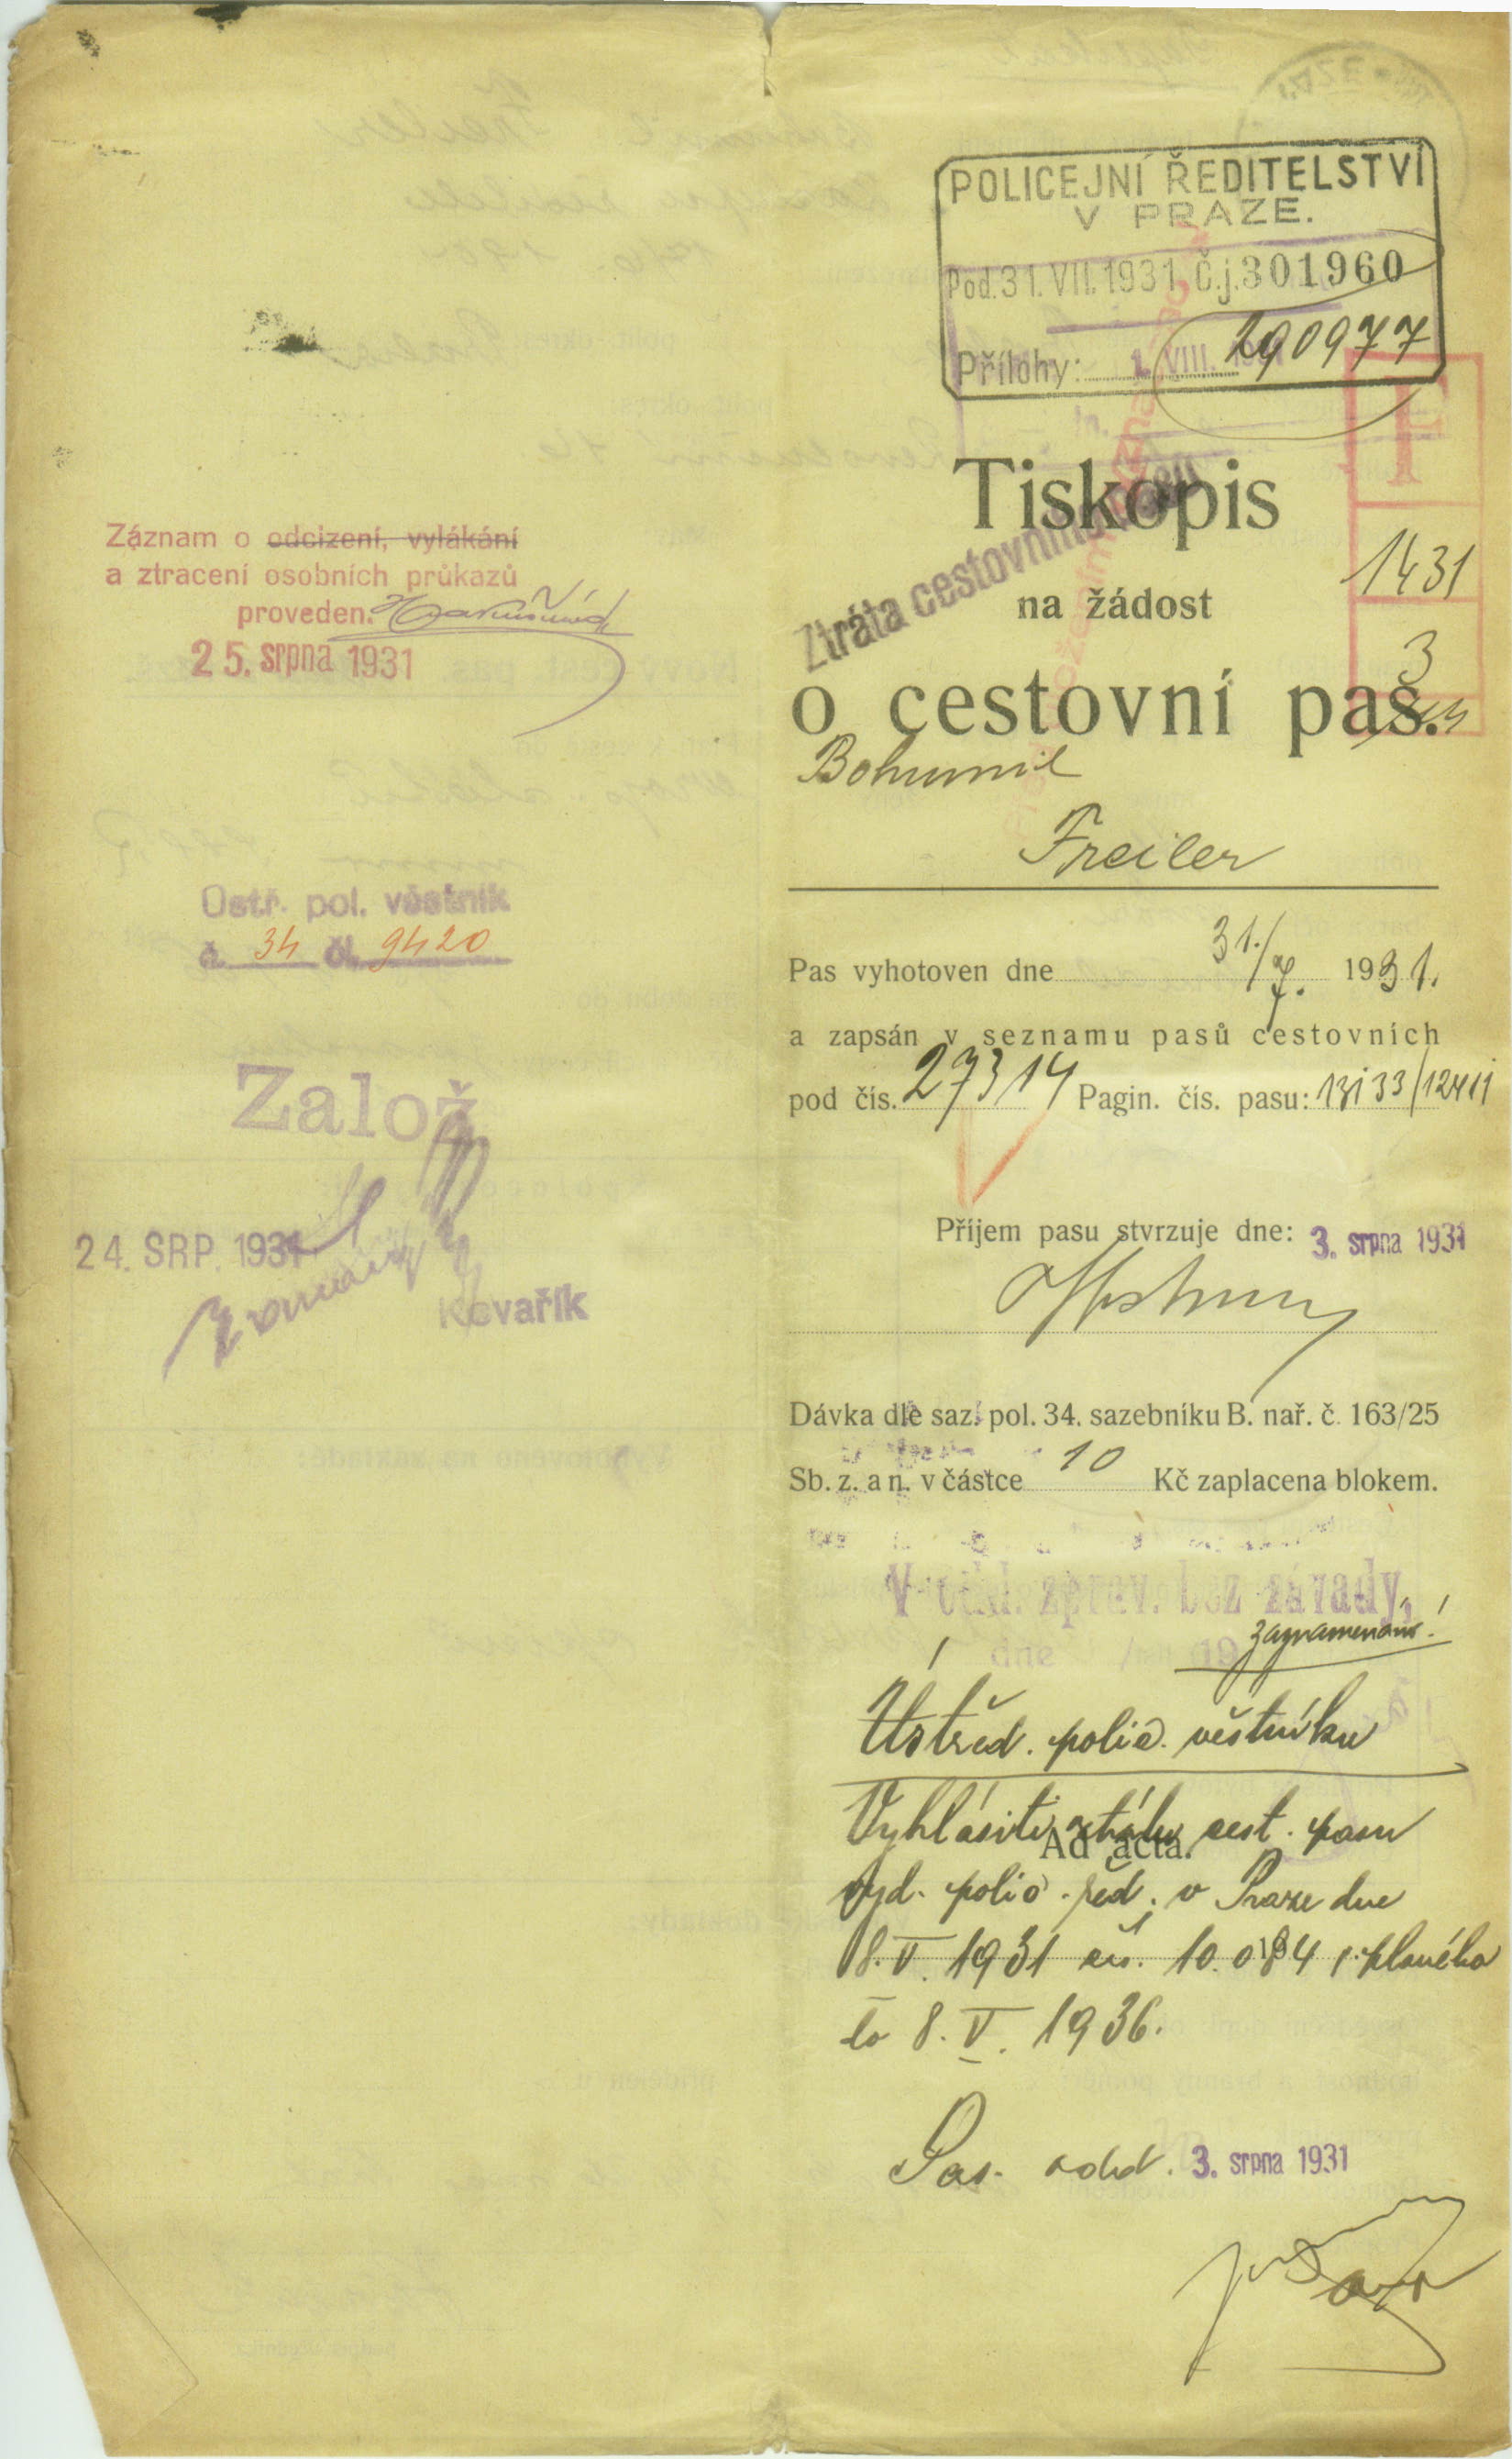 Záznam o odcizení, vylákání
a ztracení osobních průkazů
proveden.
25. srpna 1931
Ústř. pol. věstník
č. 34 čl. 9420
Založ
24. SRP. 1931
Kovařík
POLICEJNÍ ŘEDITELSTVÍ
V PRAZE.
Pod. 31. VII. 1931 Č.j. 301960
Přílohy: 1. VIII. 290977
F
1431
3
Tiskopis
Ztráta cestovního
na žádost
o cestovní pas.
Bohumil
Freiler
Pas vyhotoven dne 31./7. 1931.
a zapsán v seznamu pasů cestovních
pod čís. 27314 Pagin. čís. pasu:
Příjem pasu stvrzuje dne: 3. srpna 1931
Dávka dle saz. pol. 34. sazebníku B. nař. č. 163/25
Sb. z. a n. v částce 10 Kč zaplacena blokem.
V odd. zpráv. bez závady,
dne 19
zaznamenání!
Ústřed. polic. věstníku
Vyhlásiti ztrátu cest. pasu
Ad acta.
vyd. polic. řed. v Praze dne
8. V. 1931 čís. 10.084 platného
do 8. V. 1936.
Pas. odd. 3. srpna 1931